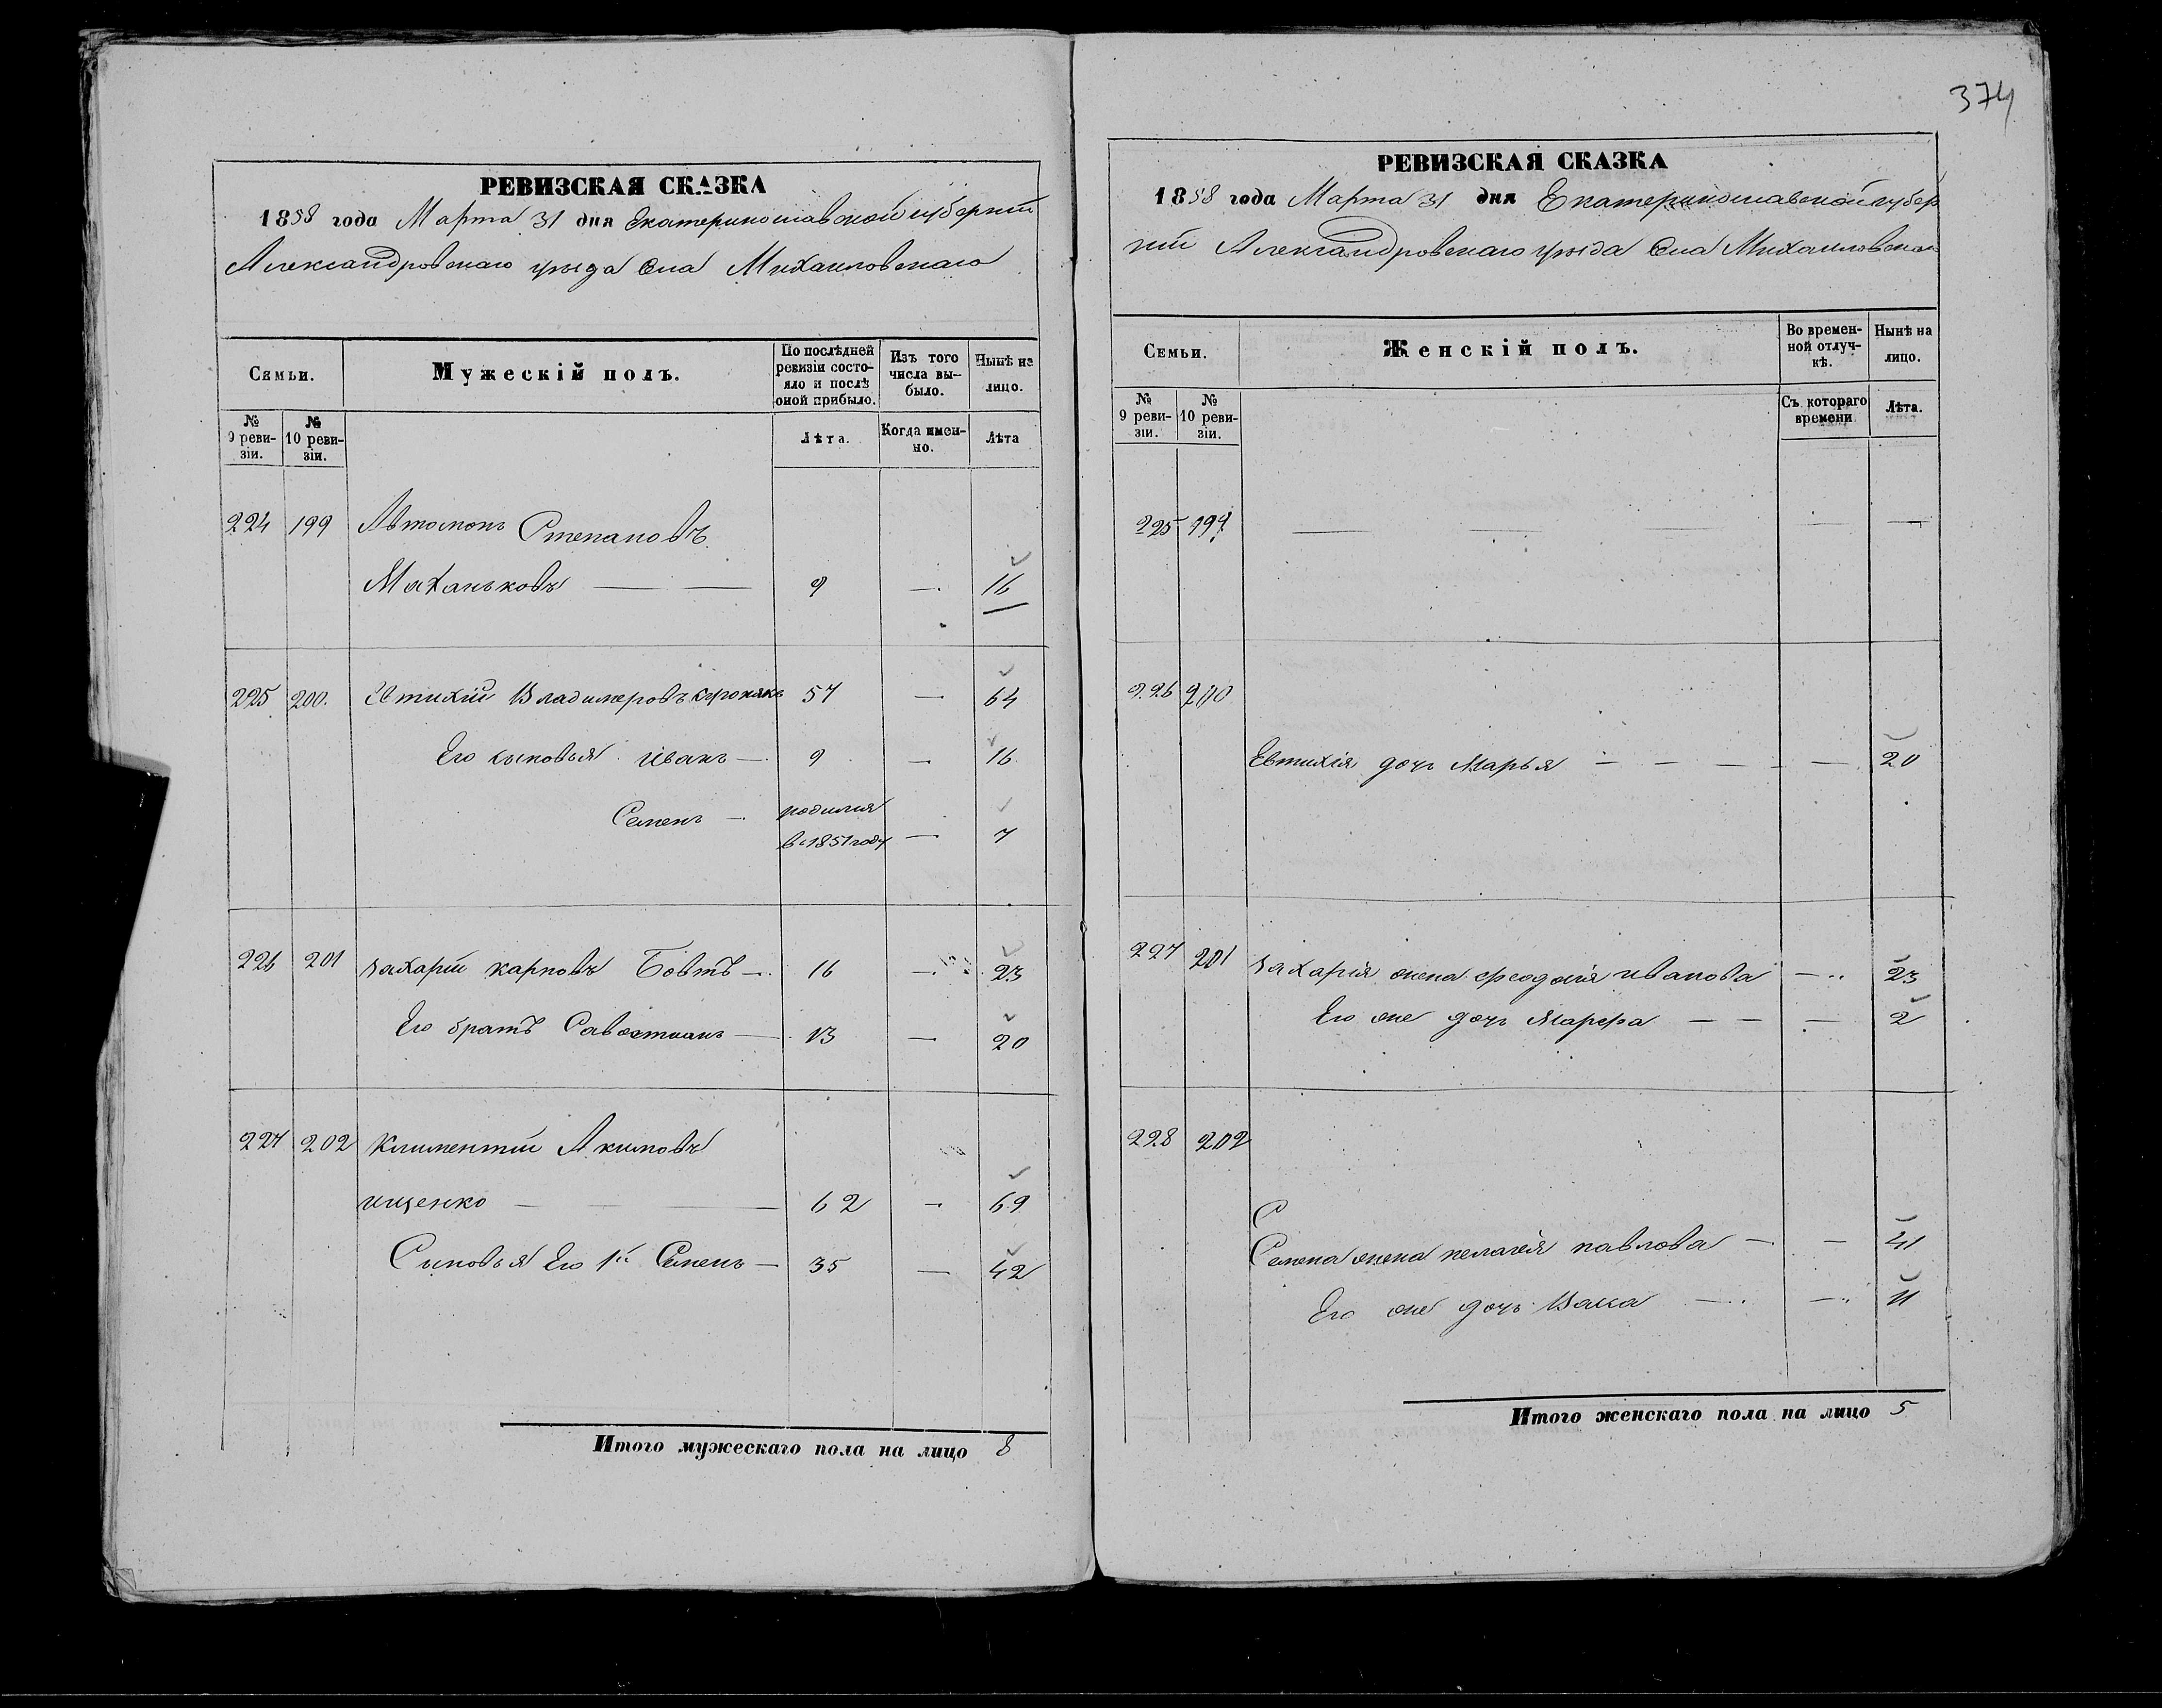 374
РЕВИЗСКАЯ СКАЗКА
1858 года Марта 31 дня Екатеринославской губерніи
Александровскаго уѣзда Села Михаиловскаго
Семьи.
Мужескій полъ.
По послѣдней ревизіи состояло и послѣ оной прибыло.
Изъ того числа выбыло.
Нынѣ на лицо.
№ 9 ревизіи.
№ 10 ревизіи.
Лѣта.
Когда именно.
Лѣта
224 199 Автомонъ Степановъ
Маханьковъ — — 9 — 16
225 200. Евтихій Владимеровъ 57 — 64
Его сыновья Иванъ — 9 — 16
Семенъ — родился
в 1851 году — 7
226 201 Захарій Карповъ Бовтъ — 16 — 23
Его братъ Савостианъ — 13 — 20
227 202 Климентій Акимовъ
Ищенко — — — 62 — 69
Сыновья Его 1й Семенъ — 35 — 42
Итого мужескаго пола на лицо 8
РЕВИЗСКАЯ СКАЗКА
1858 года Марта 31 дня Екатеринославской губер
ніи Александровскаго уѣзда Села Михаиловскаго
Семьи.
Женскій полъ.
Во временной отлучкѣ.
Нынѣ на лицо.
№ 9 ревизіи.
№ 10 ревизіи.
Съ котораго времени
Лѣта.
225 199 — — — — —
226 200
Евтихія дочь Марья — — — — — 20
227 201 Захарія жена Феодосія Иванова — 23
Его же дочь Марфа — — — 2
228 202
С
Семена жена Пелагея Павлова — — 41
Его же дочь Васса — — 11
Итого женскаго пола на лицо 5